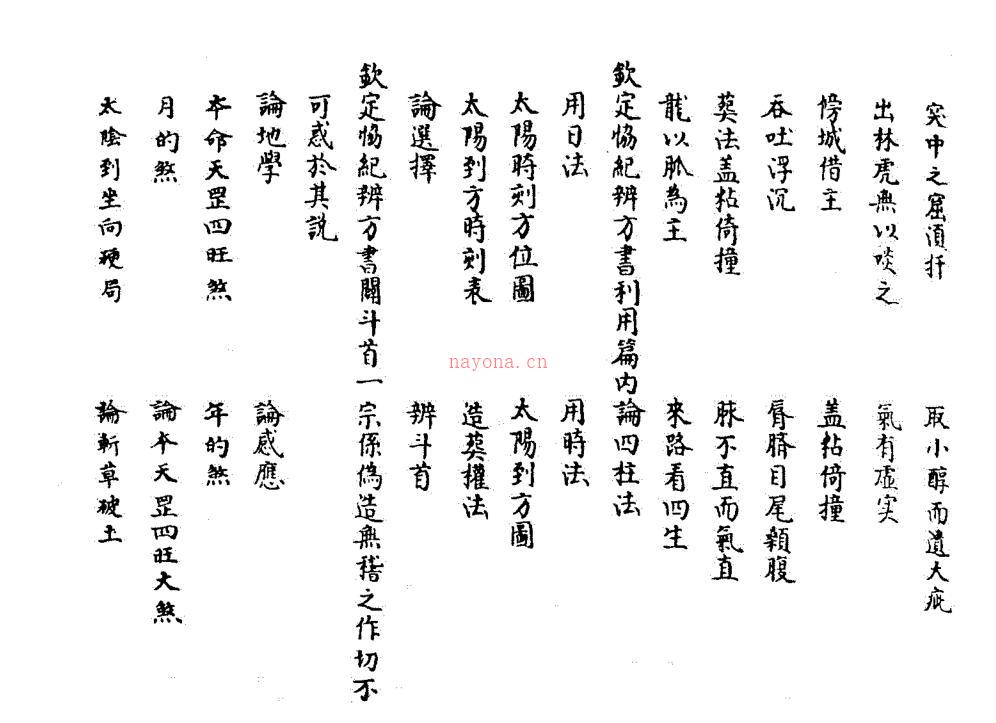 突中之窟須扦　取小醇而遺大疵
出林虎無以啖之　氣有虛实
傍城借主　盖粘倚撞
吞吐浮沉　唇臍目尾顙腹
葬法盖粘倚撞　脉不直而氣直
龍以脈為主　來路看四生
欽定恊紀辨方書利用篇内論四柱法
用日法　用時法
太陽時刻方位圖　太陽到方圖
太陽到方時刻表　造葬權法
論選擇　辨斗首
欽定恊紀辨方書闢斗首一宗係偽造無稽之作切不
可惑於其説
論地學　論感應
本命天罡四旺煞　年的煞
月的煞　論本天罡四旺大煞
太陰到坐向硬局　論斬草破土
nayona.cn